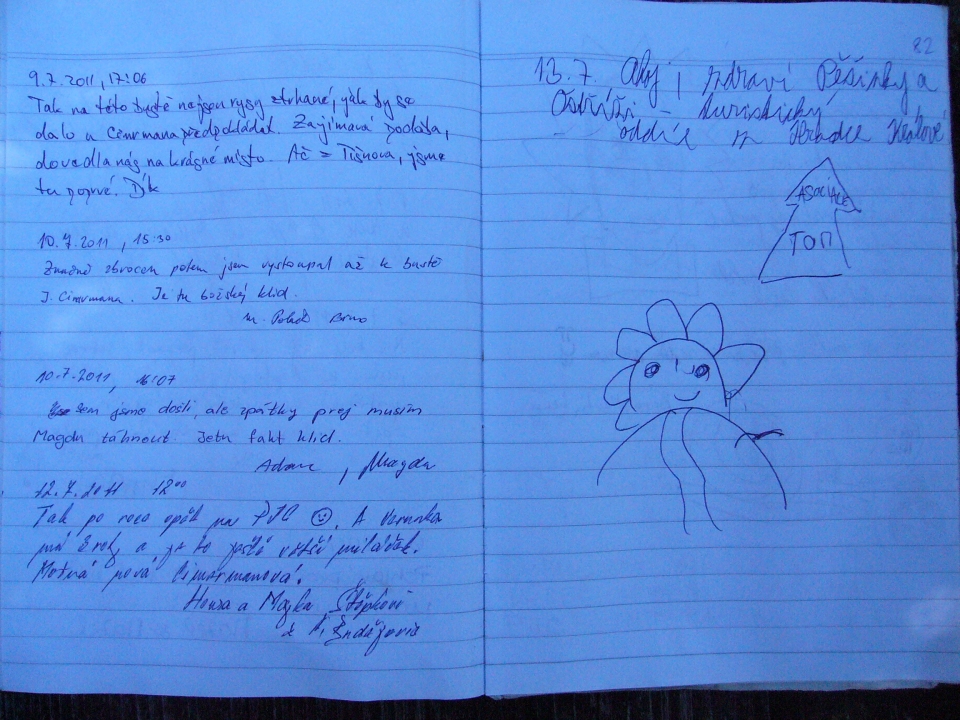 9.7.2011, 17:06
Tak na této bustě nejsou rysy ztrhané, jak by se
dalo u Cimrmana předpokládat. Zajímavá podoba,
dovedla nás na krásné místo. Ač z Tišnova, jsme
tu poprvé. Dík
10.7.2011, 15:30
Značně zbrocen potem jsem vystoupal až k bustě
J. Cimrmana. Je tu božský klid.
M. Brno
10.7.2011, 16:07
sem jsme došli, ale zpátky prej musím
Magdu táhnout. Jetu fakt klid.
Adam, Magda
12.7.2011 12⁰⁰
Tak po roce opět na . A Verunka
má 2 roky a je to ještě větší miláček.
Možná nová Cimrmanová.
Honza a Majka Štěpkovi
82
13.7. Ahoj, zdraví Pěšinky a
Ostříži - turistický
oddíl z Hradce Králové
ASOCIACE
TOM